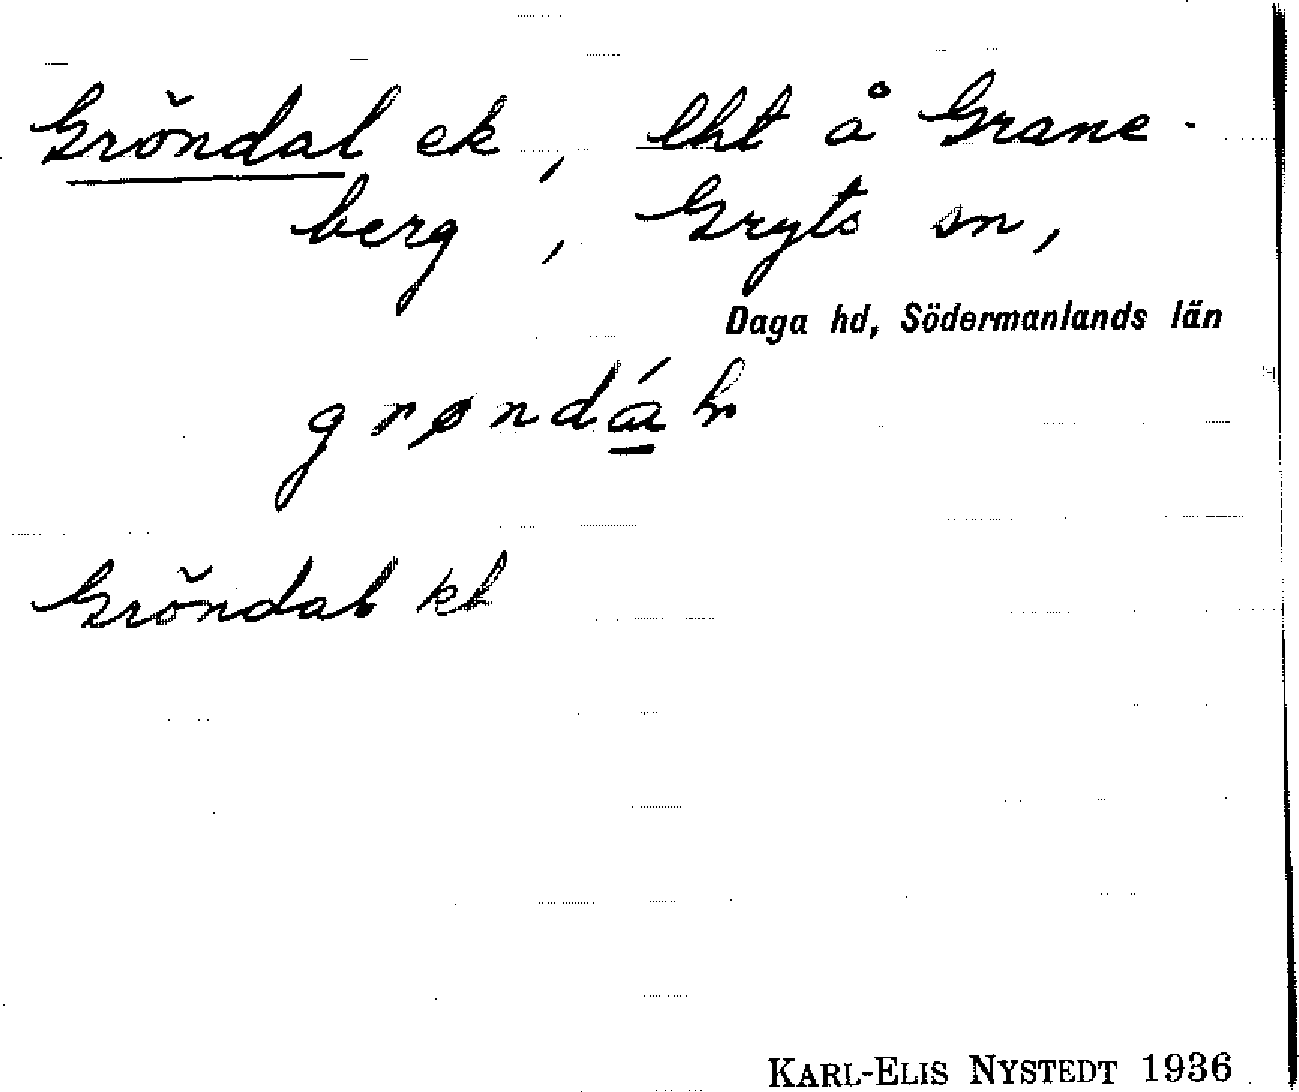 Gröndal ek, lht å Grane-
berg, Gryts sn,
Daga hd, Södermanlands län
Gröndal kb
KARL-ELIS NYSTEDT 1936